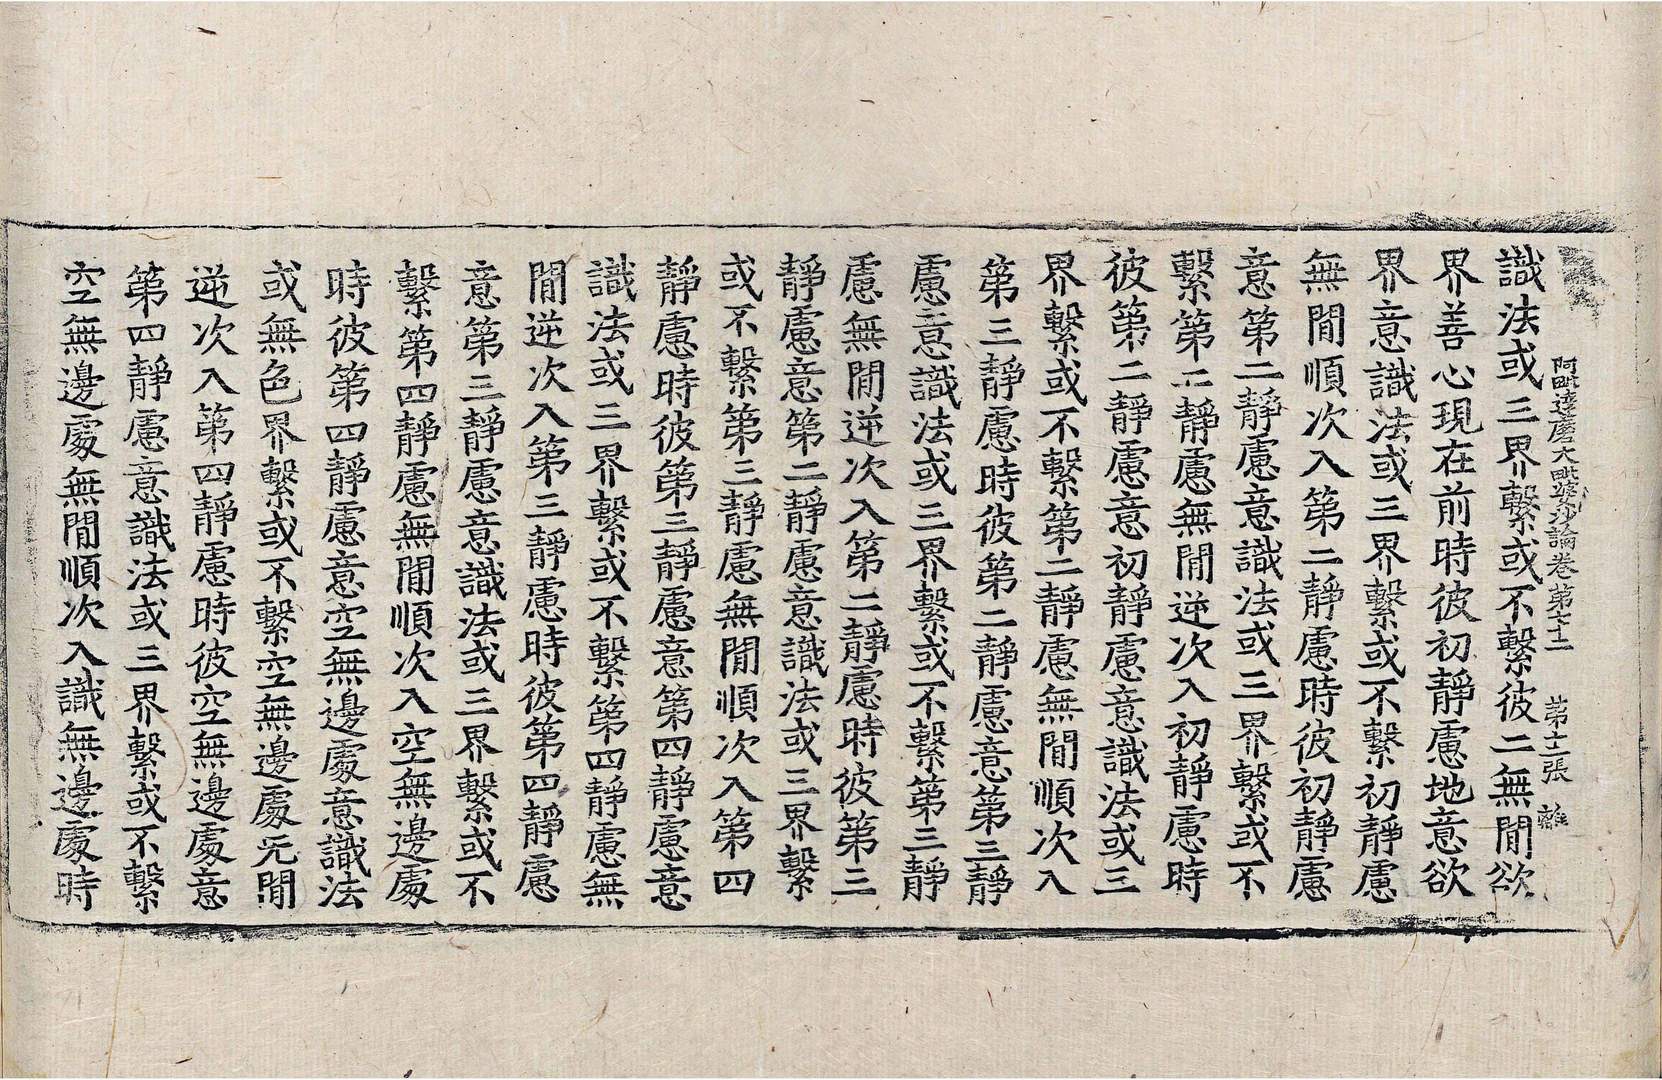 阿毗達磨大毗婆沙論卷第七十二 第十二張 離
識法或三界繫或不繫彼二無閒欲
界善心現在前時彼初靜慮地意欲
界意識法或三界繫或不繫初靜慮
無閒順次入第二靜慮時彼初靜慮
意第二靜慮意識法或三界繫或不
繫第二靜慮無閒逆次入初靜慮時
彼第二靜慮意初靜慮意識法或三
界繫或不繫第二靜慮無閒順次入
第三靜慮時彼第二靜慮意第三靜
慮意識法或三界繫或不繫第三靜
慮無閒逆次入第二靜慮時彼第三
靜慮意第二靜慮意識法或三界繫
或不繫第三靜慮無閒順次入第四
靜慮時彼第三靜慮意第四靜慮意
識法或三界繫或不繫第四靜慮無
閒逆次入第三靜慮時彼第四靜慮
意第三靜慮意識法或三界繫或不
繫第四靜慮無閒順次入空無邊處
時彼第四靜慮意空無邊處意識法
或無色界繫或不繫空無邊處无閒
逆次入第四靜慮時彼空無邊處意
第四靜慮意識法或三界繫或不繫
空無邊處無閒順次入識無邊處時